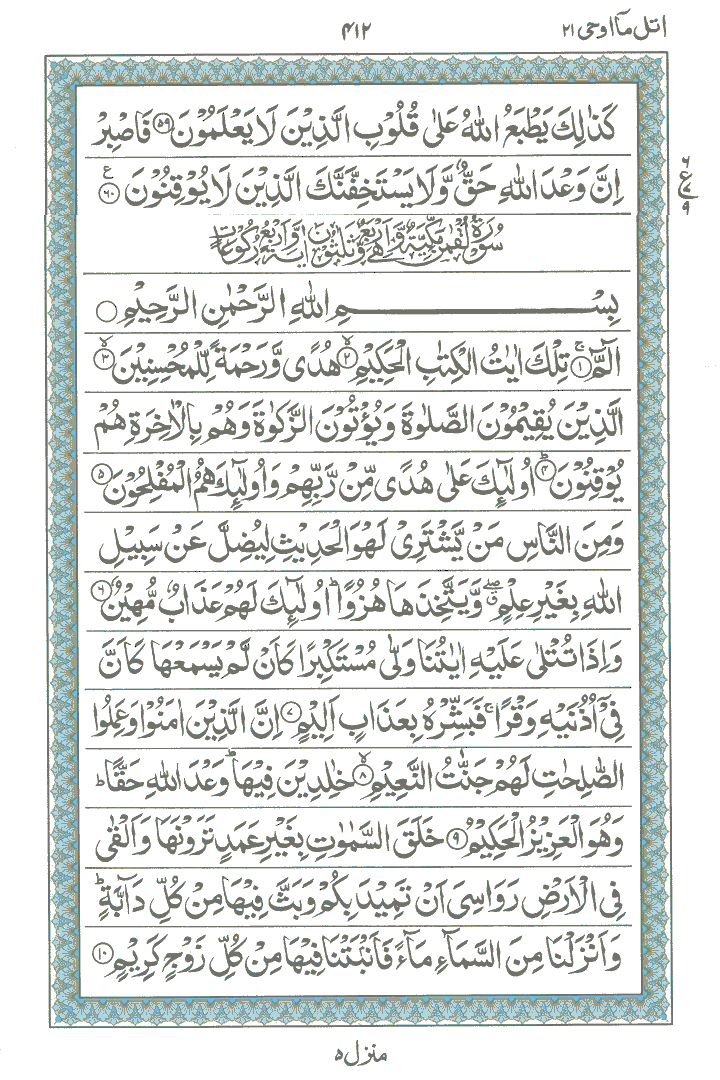 اتل مآ اوحی ۲۱
۴۱۲
كَذٰلِكَ يَطْبَعُ اللّٰهُ عَلٰى قُلُوْبِ الَّذِيْنَ لَا يَعْلَمُوْنَ ۵۹ فَاصْبِرْ
اِنَّ وَعْدَ اللّٰهِ حَقٌّ وَّلَا يَسْتَخِفَّنَّكَ الَّذِيْنَ لَا يُوْقِنُوْنَ ۶۰ ع
۶
ع
۷
۹
سُوْرَةُ لُقْمٰنَ مَكِّيَّةٌ وَّهِيَ اَرْبَعٌ وَّثَلٰثُوْنَ اٰيَةً وَّاَرْبَعُ رُكُوْعَاتٍ
بِسْمِ اللّٰهِ الرَّحْمٰنِ الرَّحِيْمِ
الٓمّٓ ۱ۚ تِلْكَ اٰيٰتُ الْكِتٰبِ الْحَكِيْمِ ۲ۙ هُدًى وَّرَحْمَةً لِّلْمُحْسِنِيْنَ ۳ۙ
الَّذِيْنَ يُقِيْمُوْنَ الصَّلٰوةَ وَيُؤْتُوْنَ الزَّكٰوةَ وَهُمْ بِالْاٰخِرَةِ هُمْ
يُوْقِنُوْنَ ۴ؕ اُولٰٓئِكَ عَلٰى هُدًى مِّنْ رَّبِّهِمْ وَاُولٰٓئِكَ هُمُ الْمُفْلِحُوْنَ ۵
وَمِنَ النَّاسِ مَنْ يَّشْتَرِيْ لَهْوَ الْحَدِيْثِ لِيُضِلَّ عَنْ سَبِيْلِ
اللّٰهِ بِغَيْرِ عِلْمٍ ۖ وَّيَتَّخِذَهَا هُزُوًا ؕ اُولٰٓئِكَ لَهُمْ عَذَابٌ مُّهِيْنٌ ۶
وَاِذَا تُتْلٰى عَلَيْهِ اٰيٰتُنَا وَلّٰى مُسْتَكْبِرًا كَاَنْ لَّمْ يَسْمَعْهَا كَاَنَّ
فِيْٓ اُذُنَيْهِ وَقْرًا ۚ فَبَشِّرْهُ بِعَذَابٍ اَلِيْمٍ ۷ اِنَّ الَّذِيْنَ اٰمَنُوْا وَعَمِلُوا
الصّٰلِحٰتِ لَهُمْ جَنّٰتُ النَّعِيْمِ ۸ۙ خٰلِدِيْنَ فِيْهَا ؕ وَعْدَ اللّٰهِ حَقًّا ؕ
وَهُوَ الْعَزِيْزُ الْحَكِيْمُ ۹ خَلَقَ السَّمٰوٰتِ بِغَيْرِ عَمَدٍ تَرَوْنَهَا وَاَلْقٰى
فِي الْاَرْضِ رَوَاسِيَ اَنْ تَمِيْدَ بِكُمْ وَبَثَّ فِيْهَا مِنْ كُلِّ دَآبَّةٍ ؕ
وَاَنْزَلْنَا مِنَ السَّمَآءِ مَآءً فَاَنْۢبَتْنَا فِيْهَا مِنْ كُلِّ زَوْجٍ كَرِيْمٍ ۱۰
منزل ۵